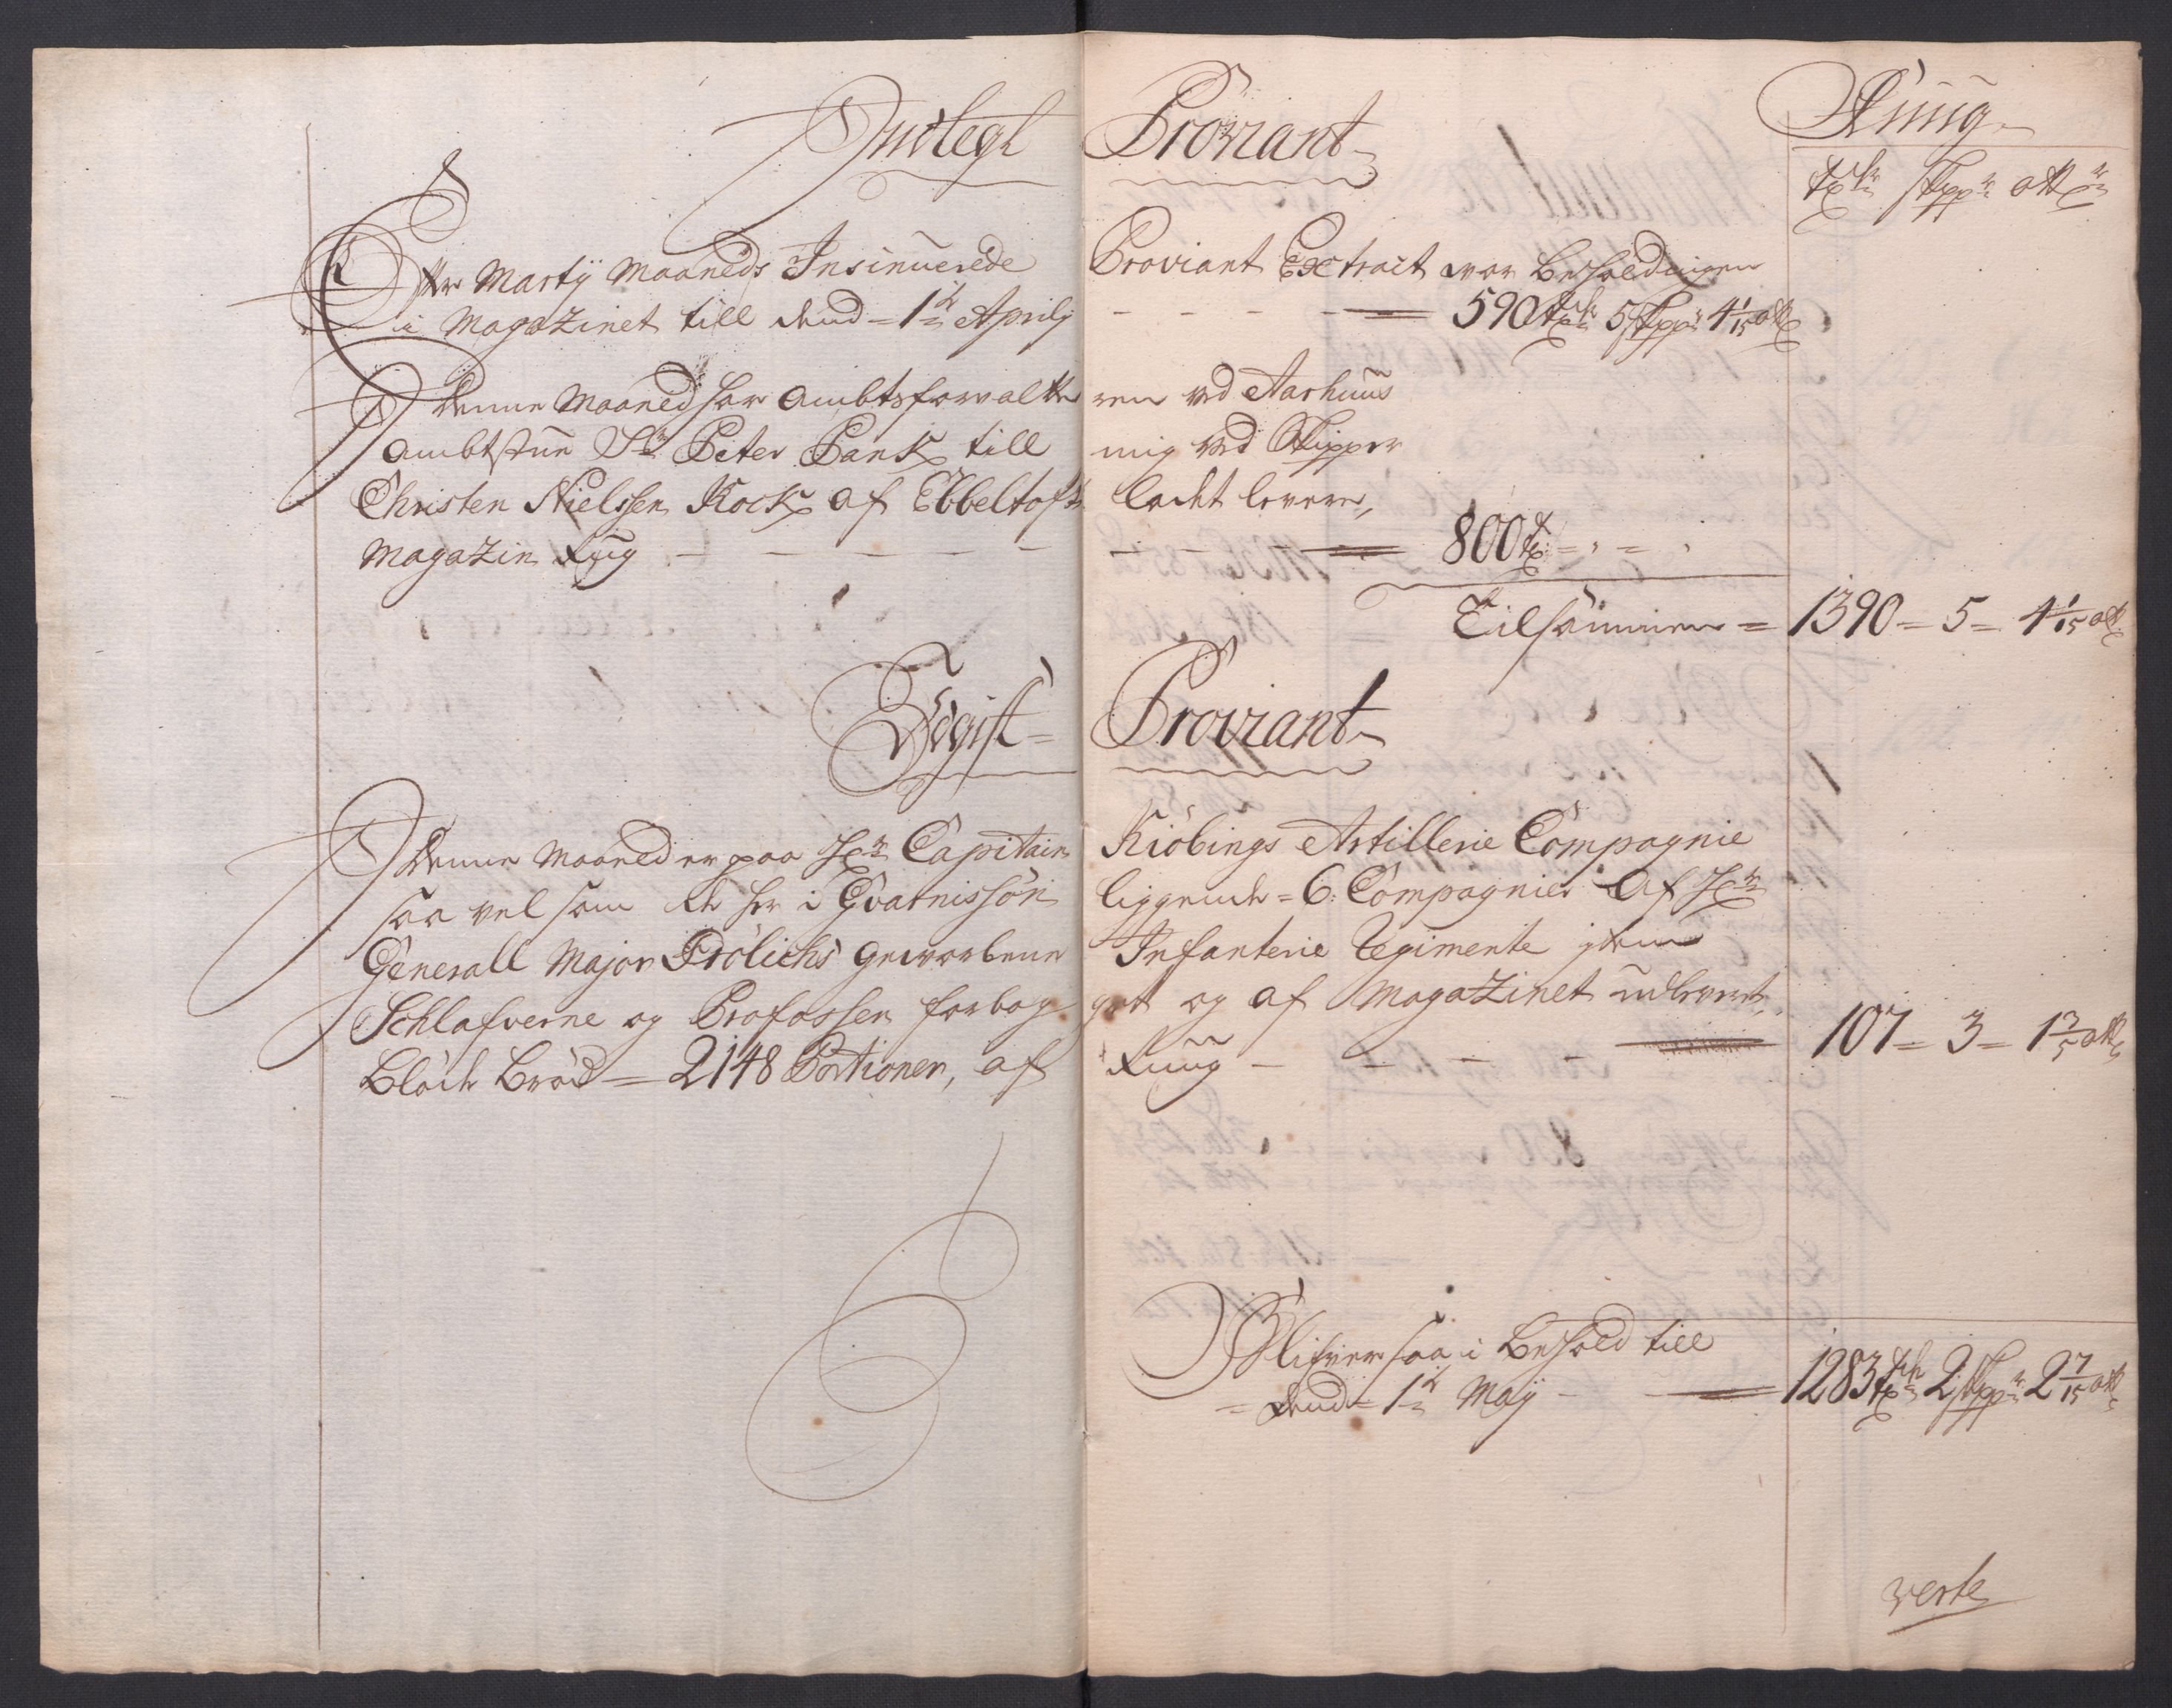 Indtegt Proviant
Rüug
tdr skpr ottr
Efter Martÿ Maaneds Insinuerede Proviant Extract var beholdningen
i Magazinet till dend 1te Aprilj - - - - 590 tdr 5 skpr 4 1/15 ott
J denne Maaned har Ambtsforvalteren ved Aarhuus
Ambtstue Sr Peter Pank till mig ved Skipper
Christen Nielssen Kock af Ebbeltoft ladet levere,
Magazin Rug - - - - - - - - 800 t = , = ,
Tilsammen = 1390 = 5 = 4 1/15 ott
Udgift = Proviant
J denne Maaned er paa Hr Capitain Kiöbings Artillerie Compagnie
saa vel som de her i Gvarnisson liggende = 6 Compagnier af Hr
Generall Major Frölichs gevorbene Infanterie Regimente jtem
Schlafverne og Profossen forbaget og af Magazinet udleveret,
Blöde Bröd = 2148 Portioner, af Ruug - - - - 107 = 3 = 1 3/5 ott
Blifver saa i behold till
= dend = 1te Maÿ - 1283 tdr 2 skpr 2 7/15 ott
verte